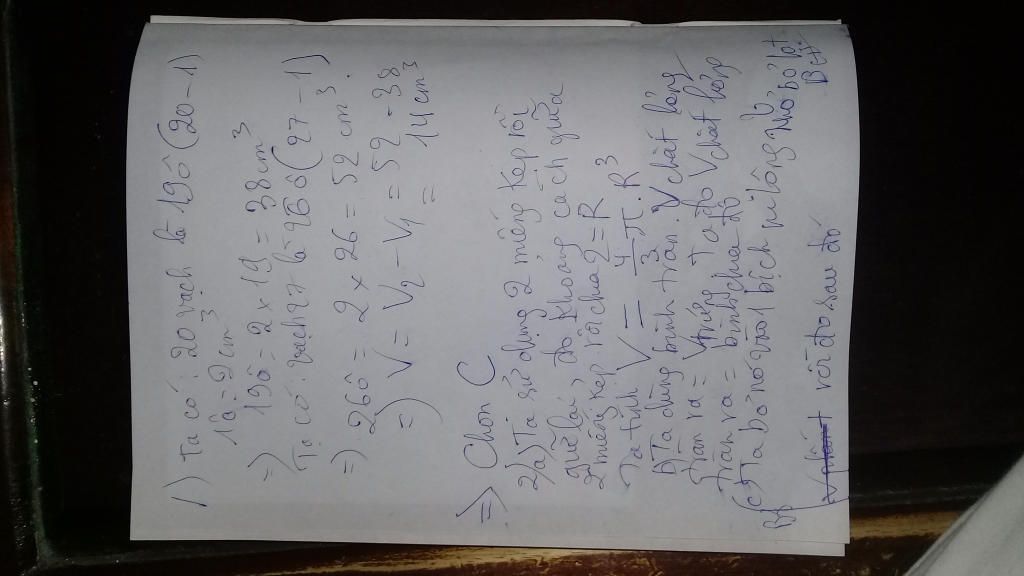 1) Ta có: 20 vạch là 19 ô (20 - 1)
1ô = 2 cm³
=> 19ô = 2 x 19 = 38 cm³
Ta có: vạch 27 là 26 ô (27 - 1)
=) 26ô = 2 x 26 = 52 cm³.
=) V = V₂ - V₁ = 52 - 38
= 14 cm³
=> Chọn C
2/a) Ta sử dụng 2 miếng kẹp rồi
giữ lại, đo khoảng cách giữa
2 miếng kẹp rồi chia 2 = R
Ta tính V = 4/3 π.R³
b) Ta dùng bình tràn. V chất lỏng
tràn ra = V trứng. Ta đo V chất lỏng
tràn ra = bình chia độ
c) Ta bỏ nó vào 1 bịch ni lông, bỏ lọt
rồi đo sau đó